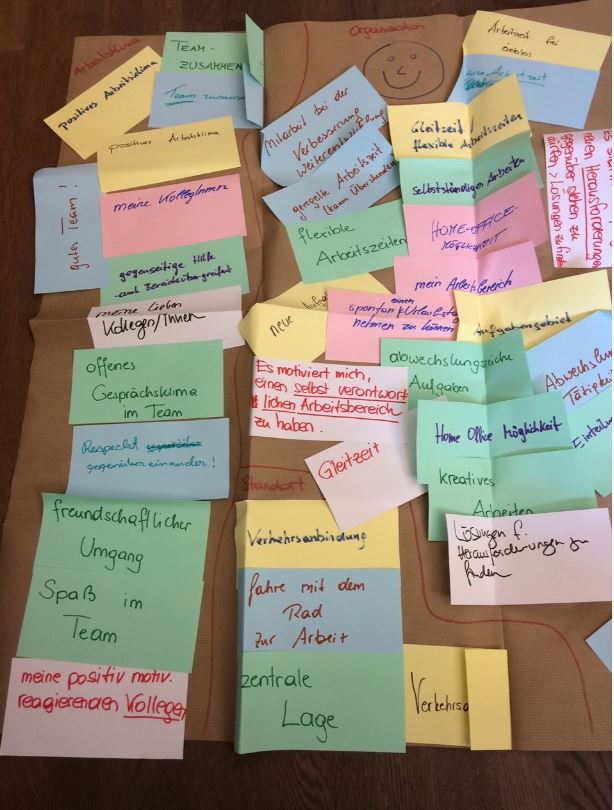 Arbeitsklima
positives Arbeitsklima
TEAM-
ZUSAMMEN
Team
positives Arbeitsklima
gutes Team!
meine KollegInnen
gegenseitige Hilfe
auch Bereichsübergreifend
meine lieben
Kollegen/Innen
offenes
Gesprächsklima
im Team
Respeckt
gegenüber einander!
freundschaftlicher
Umgang
Spaß im
Team
meine positiv motiv.
reagierenden Kollegen
Organisation
Mitarbeit bei der
Verbesserung
Weiterentwicklung
geregelte Arbeitszeit
(kaum Überstunden
flexible
Arbeitszeiten
neue
einen
spontan
nehmen zu können
Es motiviert mich,
einen selbst verantwort
lichen Arbeitsbereich
zu haben.
Gleitzeit
Arbeitszeit frei
Gleitzeit/
flexible Arbeitszeiten
selbstständiges Arbeiten
HOME-OFFICE-
MÖGLICHKEIT
mein Arbeitsbereich
Aufgabengebiet
abwechslungsreiche
Aufgaben
Home Office Möglichkeit
kreatives
Arbeiten
Lösungen f.
Herausforderungen zu
finden
Herausforderungen
gegenüber stehen zu
dürfen > Lösungen zu
Standort
Verkehrsanbindung
fahre mit dem
Rad
zur Arbeit
zentrale
Lage
Verkehrsa